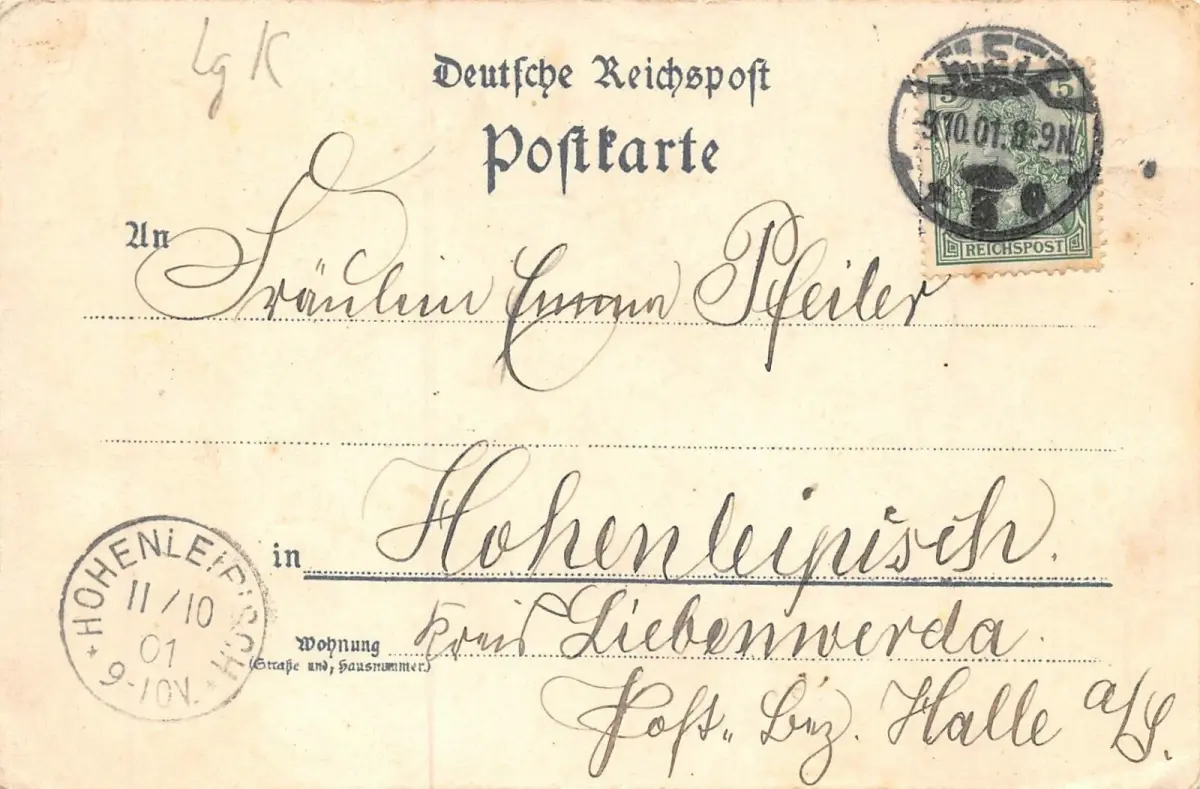 Lg K
Deutsche Reichspost
Postkarte
5 5
9.10.01. 8-9N.
REICHSPOST
An Fräulein Emma Pfeiler
in Hohenleipisch.
HOHENLEIPISCH
11/10
01
9-10V.
Wohnung Kreis Liebenwerda.
(Straße und Hausnummer.)
Post. Bez. Halle a/S.